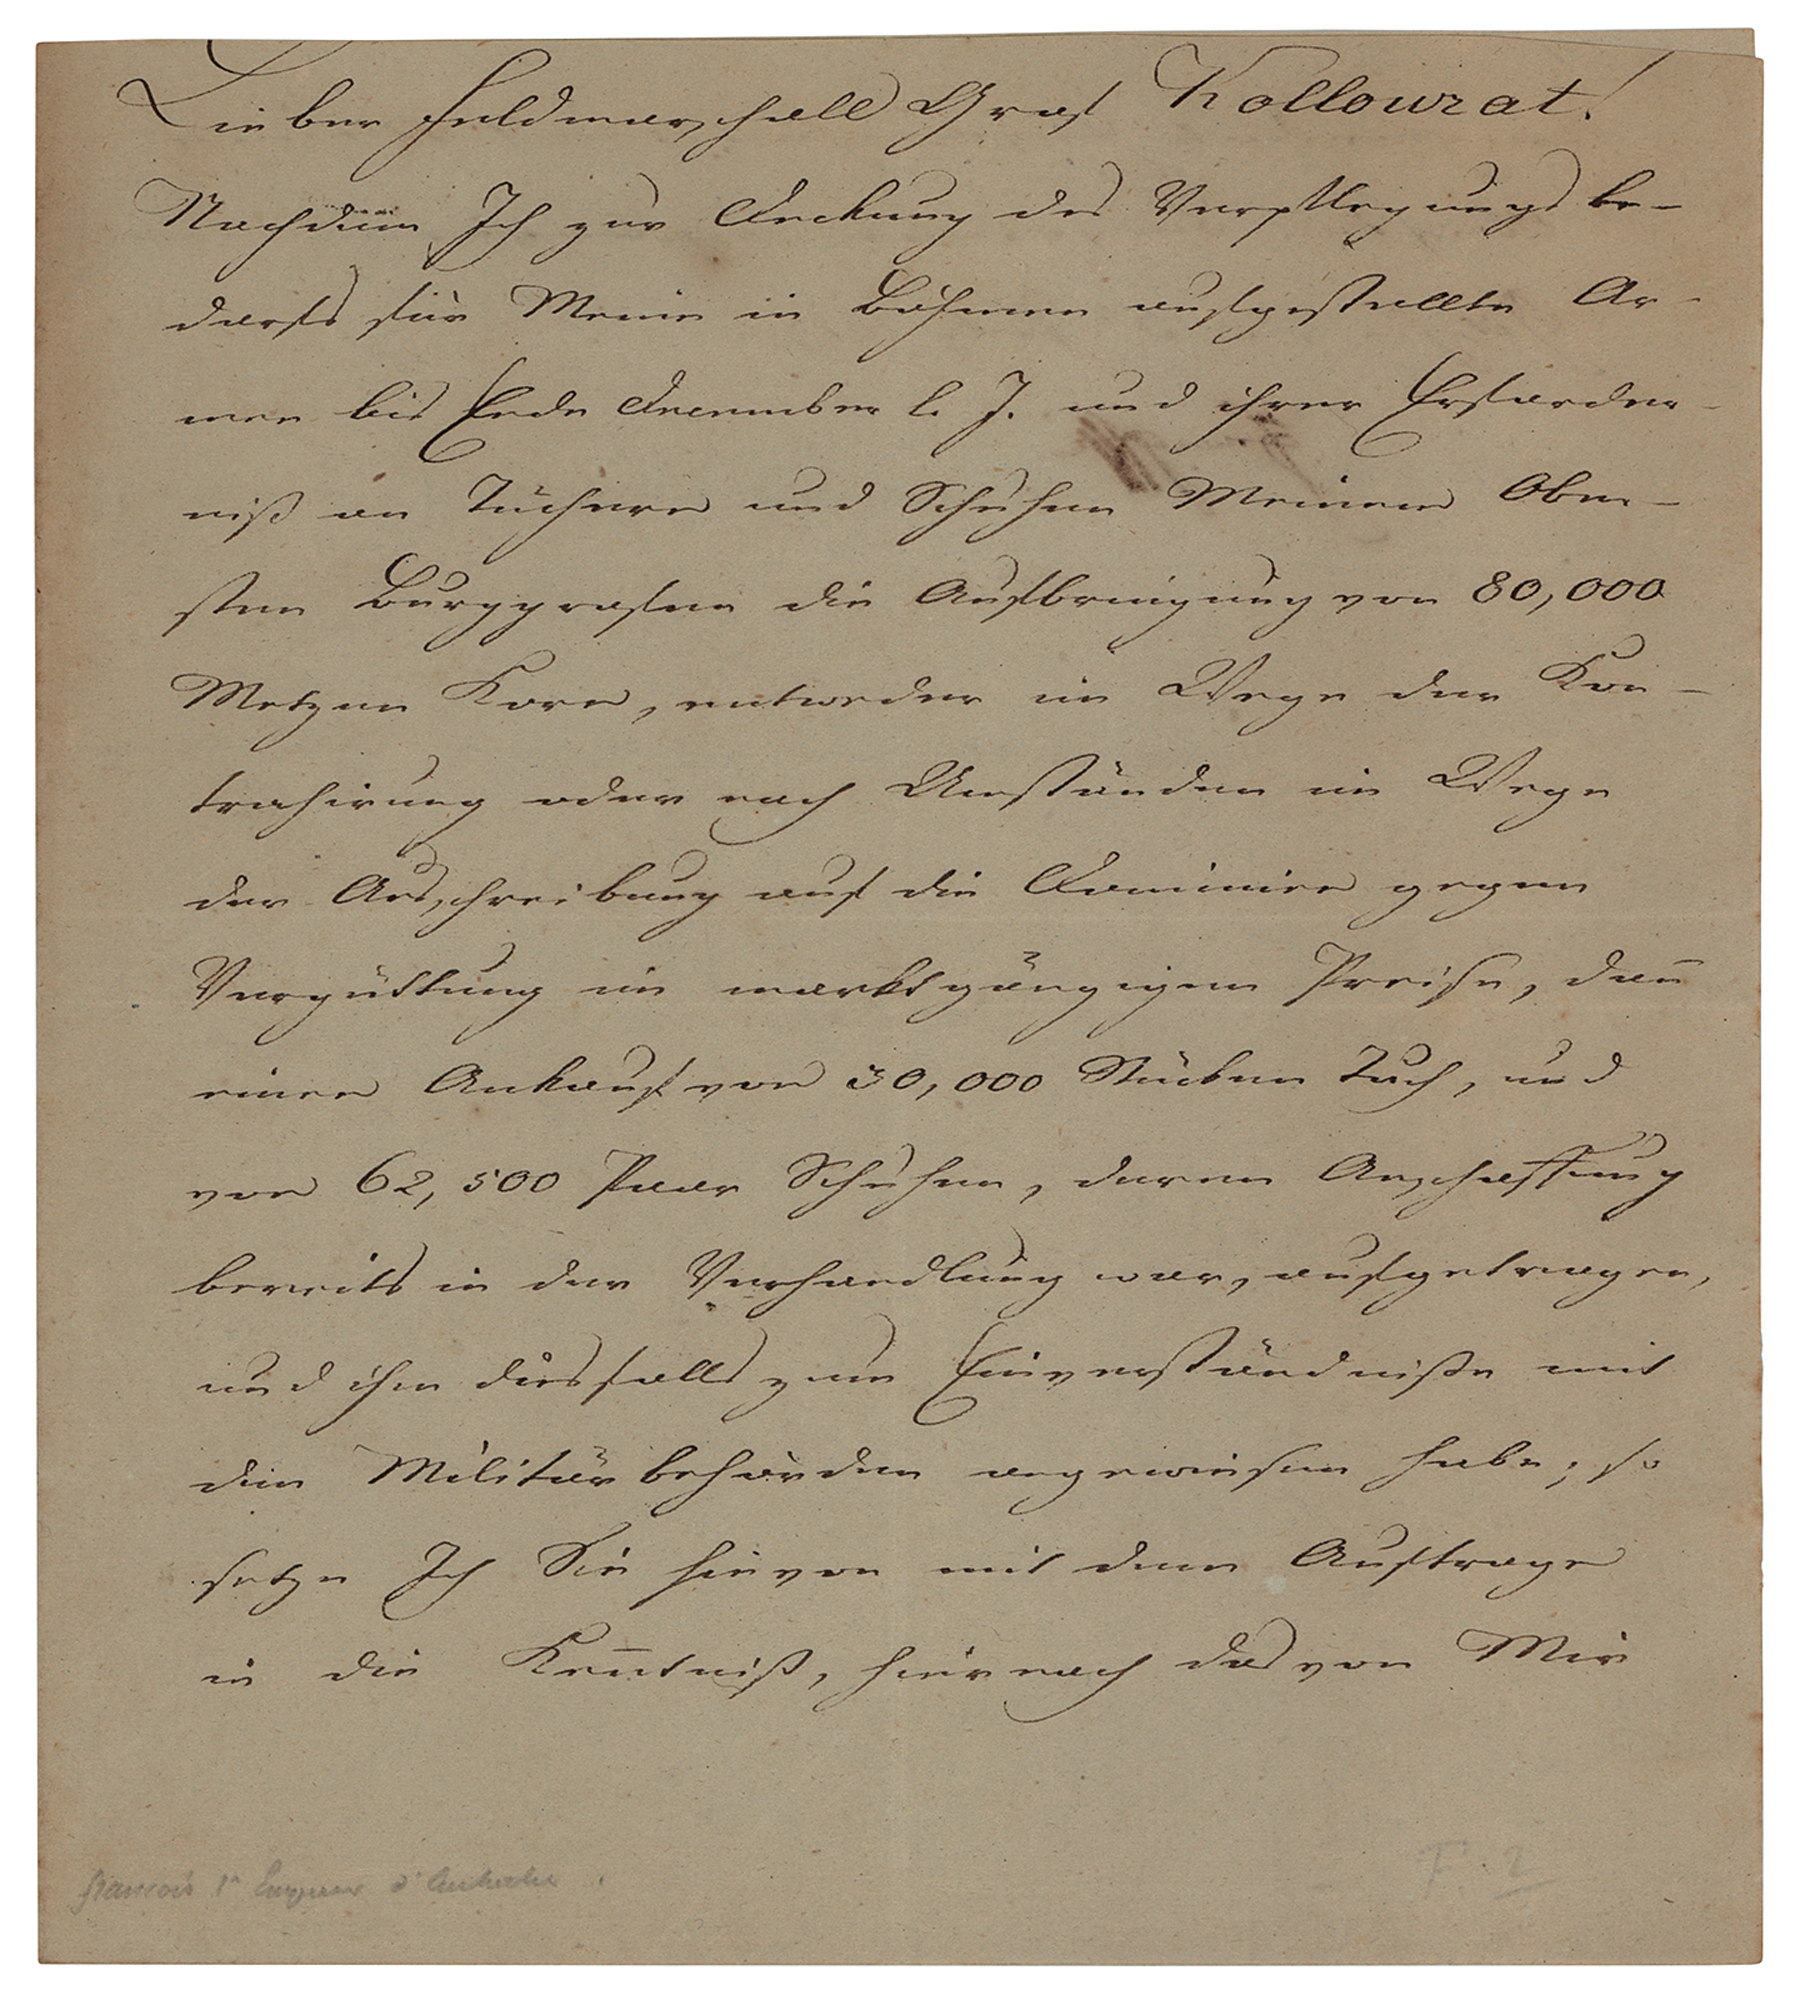 Lieber Feldmarschall Graf Kollowrat!
Nachdem Ich zur Deckung des Verpflegungsbe-
darfs für Meine in Böhmen aufgestellte Ar-
mee bis Ende December l. J. und ihrer Erforder-
niß an Tüchern und Schuhen Meinem Ober-
sten Burggrafen die Aufbringung von 80,000
Metzen Korn, entweder im Wege der Kon-
trahirung oder nach Umständen im Wege
der Ausschreibung auf die Dominien gegen
Vergüttung im marktgängigen Preise, dann
einen Ankauf von 30,000 Stücken Tuch, und
von 62,500 Paar Schuhen, deren Anschaffung
bereits in der Verhandlung war, aufgetragen,
und ihn diesfalls zum Einverständniße mit
den Militärbehörden angewiesen habe; so
setze Ich Sie hievon mit dem Auftrage
in die Kenntniß, hiernach das von Mir
François 1er Empereur d'Autriche
F. 2